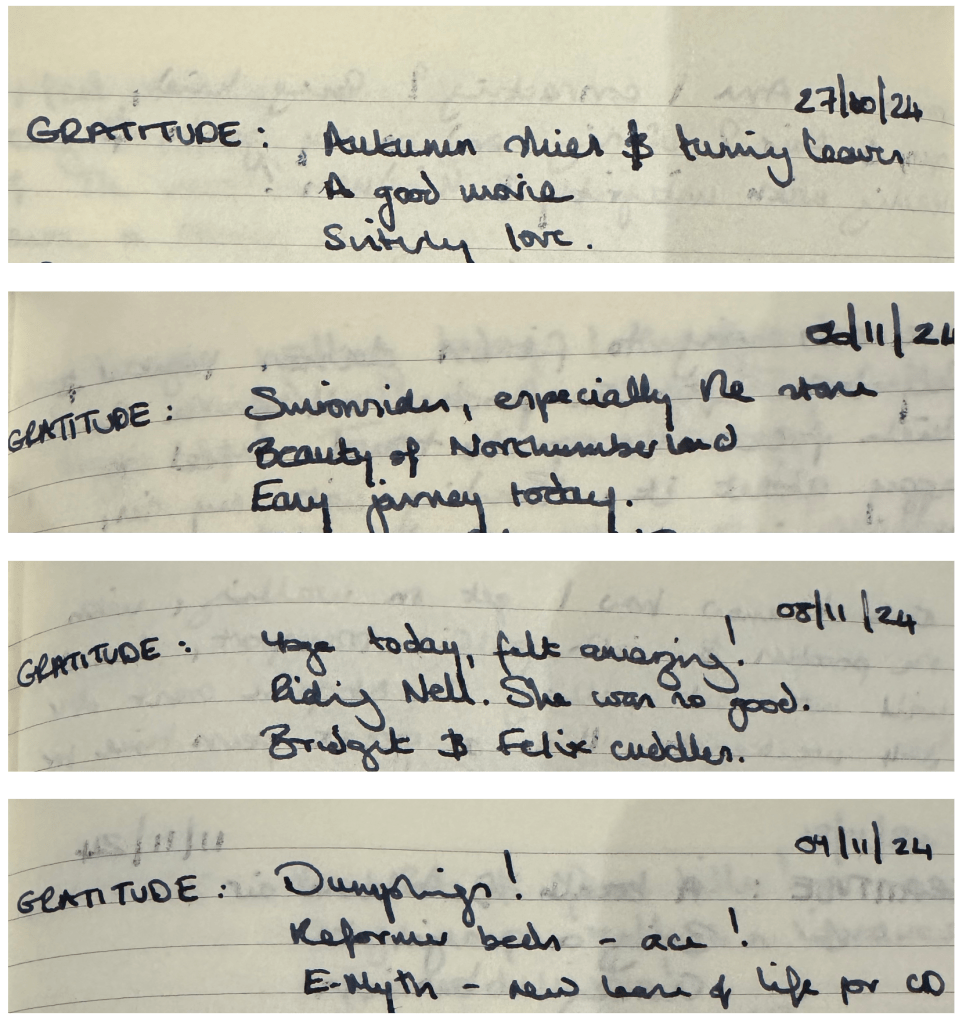 27/10/24
GRATITUDE : Autumn skies & turning leaves
A good movie
Sisterly love.
06/11/24
GRATITUDE : Simonsides, especially the stone
Beauty of Northumberland
Easy journey today.
08/11/24
GRATITUDE : Yoga today, felt amazing!
Riding Nell. She was so good.
Bridget & Felix cuddles.
09/11/24
GRATITUDE : Dumplings!
Reformer beds - ace!
E-Myth - new lease of life for CD